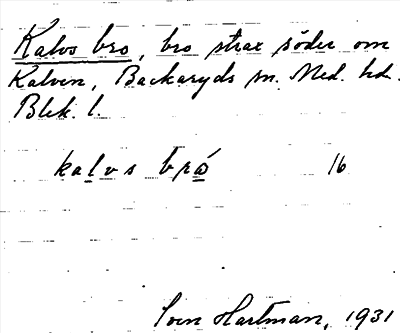 Kalvs bro, bro strax söder om
Kalven, Backaryds sn. Med. hd.
Blek. l.
kalvs brώ 16
Sven Hartman, 1931